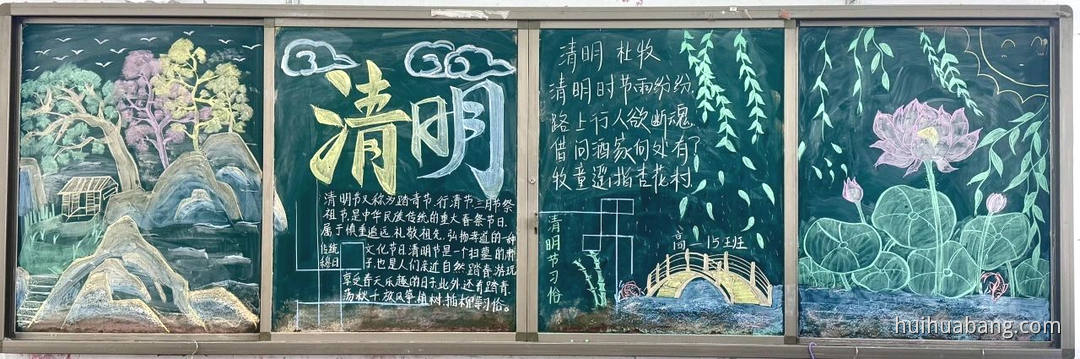 清明
清明节又称为踏青节、行清节、三月节祭
祖节,是中华民族传统的重大春祭节日,
属于慎重追远、礼敬祖先、弘扬孝道的一种
文化节日清明节是一个扫墓的
子,也是人们亲近自然、踏青游玩、
享受春天乐趣的日子,此外还有踏青、
荡秋千、放风筝、植树、插柳等习俗。
传统
节日
清明 杜牧
清明时节雨纷纷,
路上行人欲断魂。
借问酒家何处有?
牧童遥指杏花村.
清明节习俗
高一15班
huihuabang.com